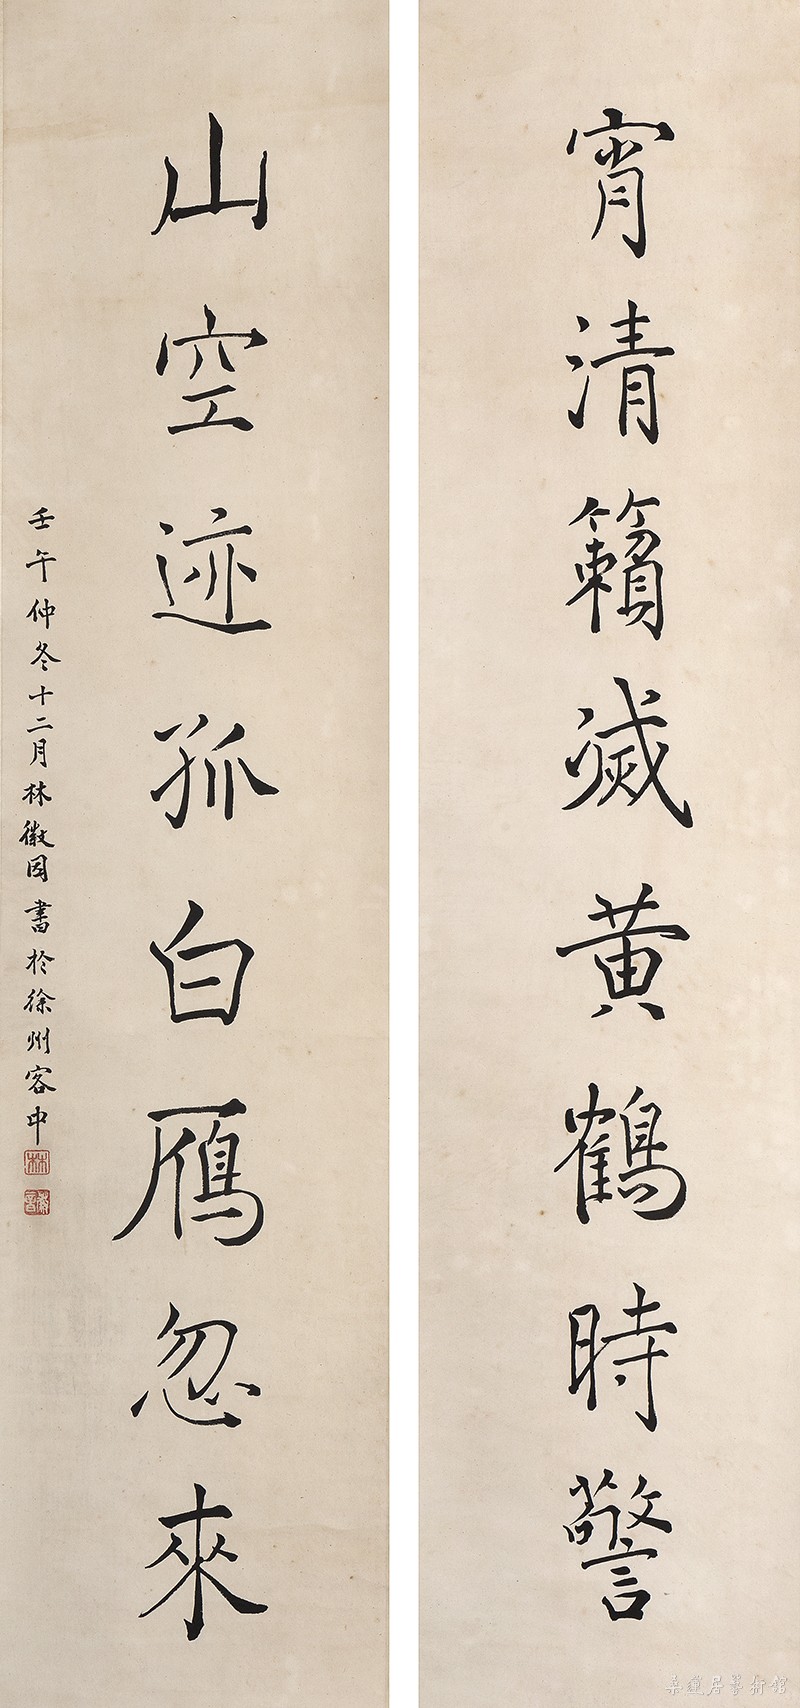 宵清籟滅黃鶴時警
山空迹孤白雁忽來
壬午仲冬十二月林徽因書於徐州客中
林
桑蓮居藝術館